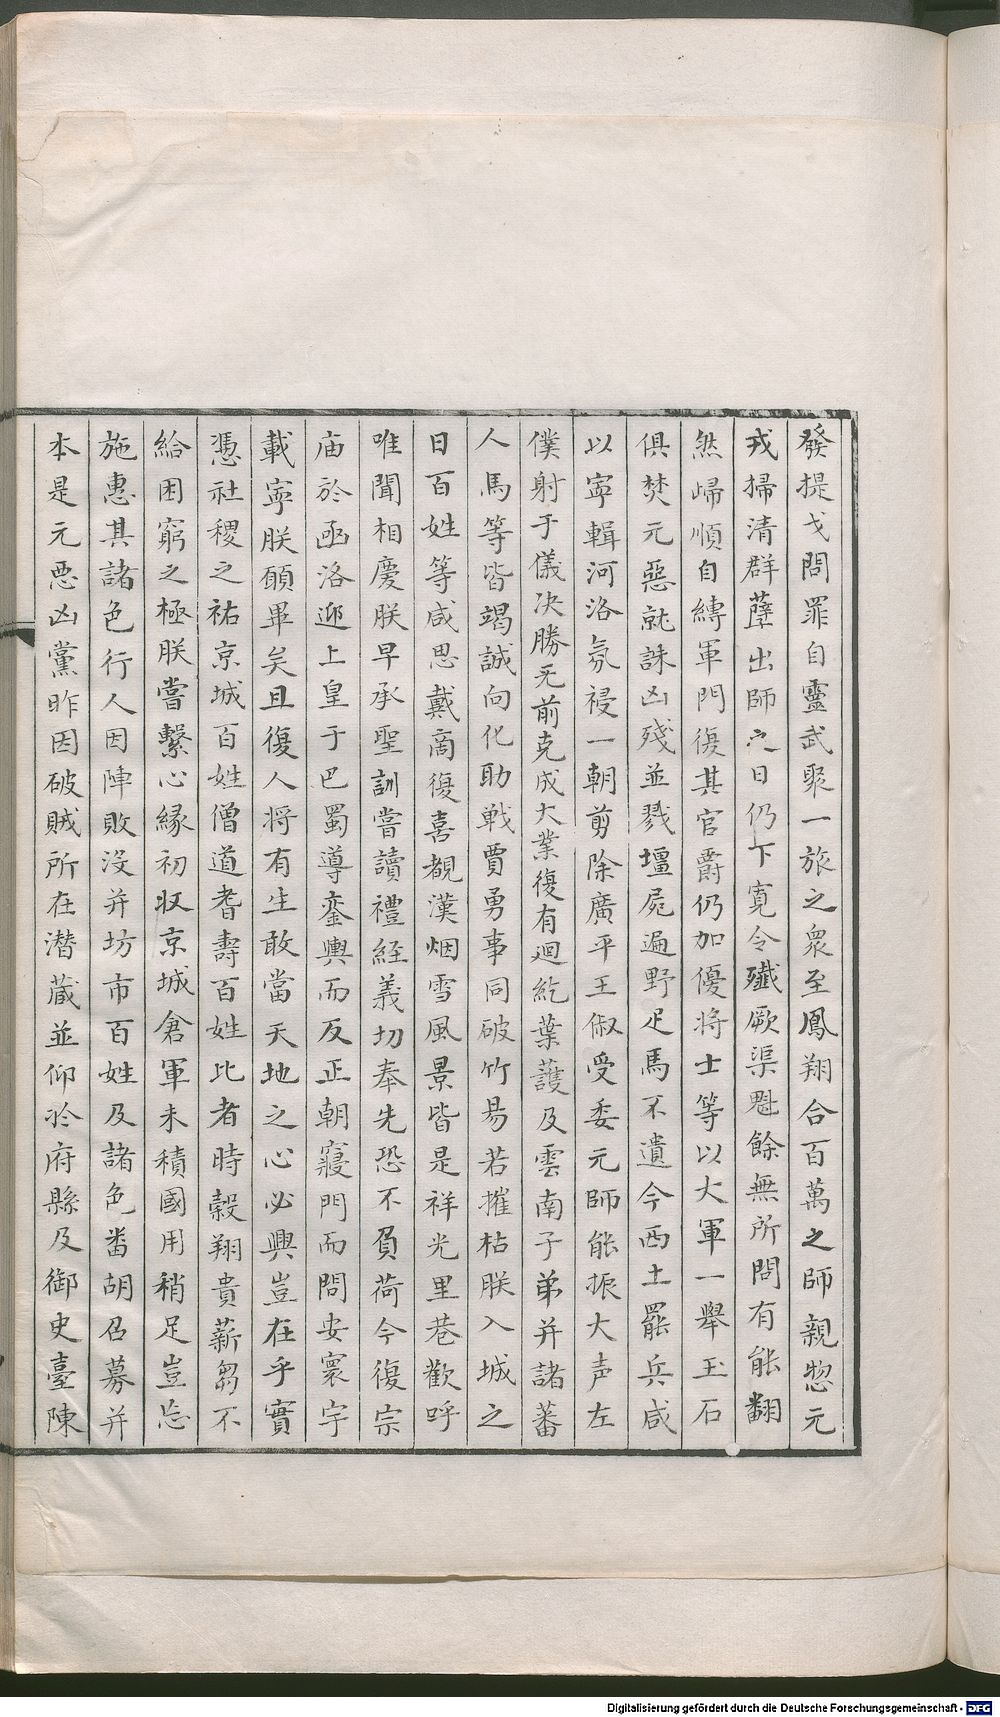 發提戈問罪自靈武聚一旅之衆至鳳翔合百萬之師親惣元
戎掃清群孽出師之日仍下寛令殲厥渠魁餘無所問有能翻
然歸順自縛軍門復其官爵仍加優將士等以大軍一舉玉石
俱焚元惡就誅凶殘並戮壃屍遍野疋馬不遺今西土罷兵咸
以寧輯河洛氛祲一朝剪除廣平王俶受委元師能振大声左
僕射于儀决勝无前克成大業復有迴紇葉護及雲南子弟并諸蕃
人馬等皆竭誠向化助戦賈勇事同破竹易若摧枯朕入城之
日百姓等咸思戴啇復喜覩漢烟雪風景皆是祥光里巷歡呼
唯聞相慶朕早承聖訓嘗讀禮經義切奉先恐不負荷今復宗
庙於函洛迎上皇于巴蜀導鑾輿而反正朝寢門而問安寰宇
載寧朕願畢矣且復人将有生敢當天地之心必興豈在乎實
憑社稷之祐京城百姓僧道耆壽百姓比者時穀翔貴薪芻不
給困窮之極朕嘗繫心縁初収京城倉軍未積國用稍足豈忘
施惠其諸色行人因陣敗没并坊市百姓及諸色畨胡召募并
本是元惡凶黨昨因破賊所在潜蔵並仰於府縣及御史臺陳
Digitalisierung gefördert durch die Deutsche Forschungsgemeinschaft - DFG